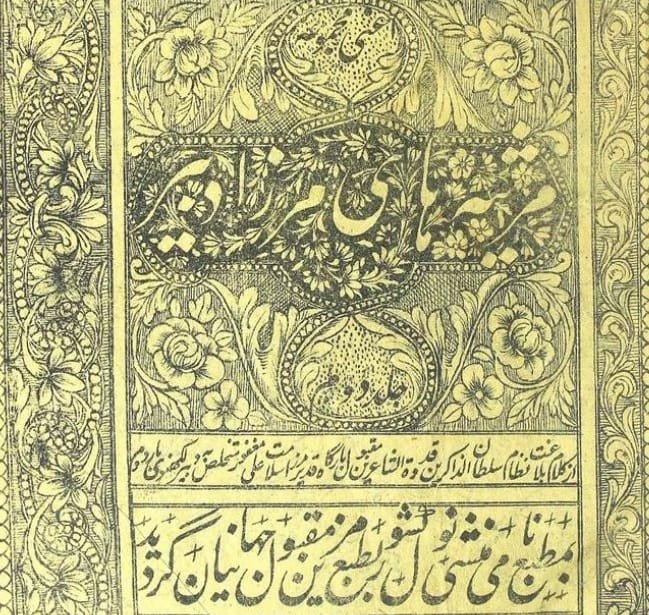 یعنی مجموعہ
مرثیہ ہای مرزا دبیر
جلد دوم
از کلام بلاغت نظام سلطان الذاکرین قدوۃ الشاعرین مقبول بارگاہ قدیر مرزا سلامت علی مغفور متخلص بہ دبیر لکھنوی بار دوم
بمطبع نامی منشی نولکشور بطبع مزین مقبول جہانیان گردید